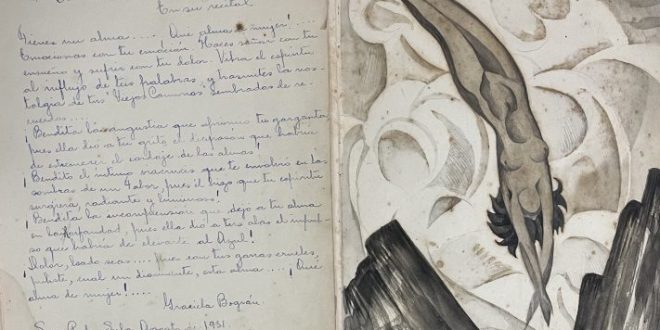 En su recital
Tienes un alma.... ¡Qué alma de mujer!....
Emocionas con tu emoción. Haces soñar con tu
ensueño y sufrir con tu dolor. Vibra el espíritu
al influjo de tus palabras, y trasmites la nos-
talgia de tus "Viejos Caminos" sembrados de re-
cuerdos...
¡Bendita la angustia que oprimió tu garganta,
pues ella dio a tu grito el diapasón que habría
de estremecer el cordaje de las almas!
¡Bendito el íntimo que te envolvió en las
sombras de un dolor, pues él hizo que tu espíritu
surgiera, radiante y luminoso!
¡Bendita la incomprensión que dejó a tu alma
en pues ella dio a tus alas el impul-
so que habría de elevarte al Azul!
¡Dolor, loado seas.... pues con tus garras crueles,
puliste, cual un diamante, esta alma....¡ Qué
alma de mujer!....
Graciela Bográn
San Pedro Sula, Agosto de 1931.